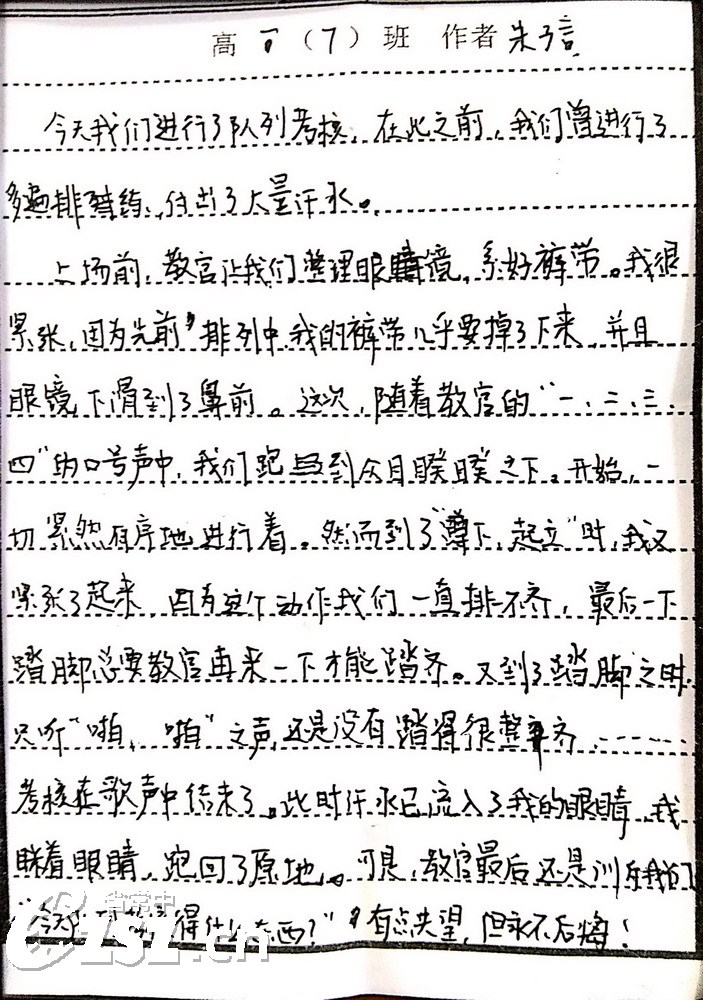 高一（7）班 作者 朱子言
今天我们进行了队列考核，在此之前，我们曾进行了
多遍排练，付出了大量汗水。
上场前，教官让我们整理眼镜，系好裤带。我很
紧张，因为先前排列中，我的裤带几乎要掉了下来，并且
眼镜下滑到了鼻前。这次，随着教官的“一、二、三、
四”的口号声中，我们跑到众目睽睽之下。开始，一
切紧然有序地进行着。然而到了“蹲下，起立”时，我又
紧张了起来，因为这个动作我们一直排不齐，最后一下
踏脚总要教官再来一下才能踏齐。又到了“踏脚”之时，
只听“啪、啪”之声，还是没有踏得很整齐……
考核在歌声中结束了。此时汗水已流入了我的眼睛，我
眯着眼睛，跑回了原地。可是，教官最后还是训斥我们
“今天 得什么东西？”有点失望，但永不后悔！